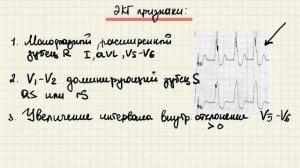 ЭКГ признаки:
1. Монофазный расширенный
зубец R I, aVL, V5-V6
2. V1-V2 доминирующий зубец S
QS или rS
3. Увеличение интервала внутр. отклонение V5-V6
> 0